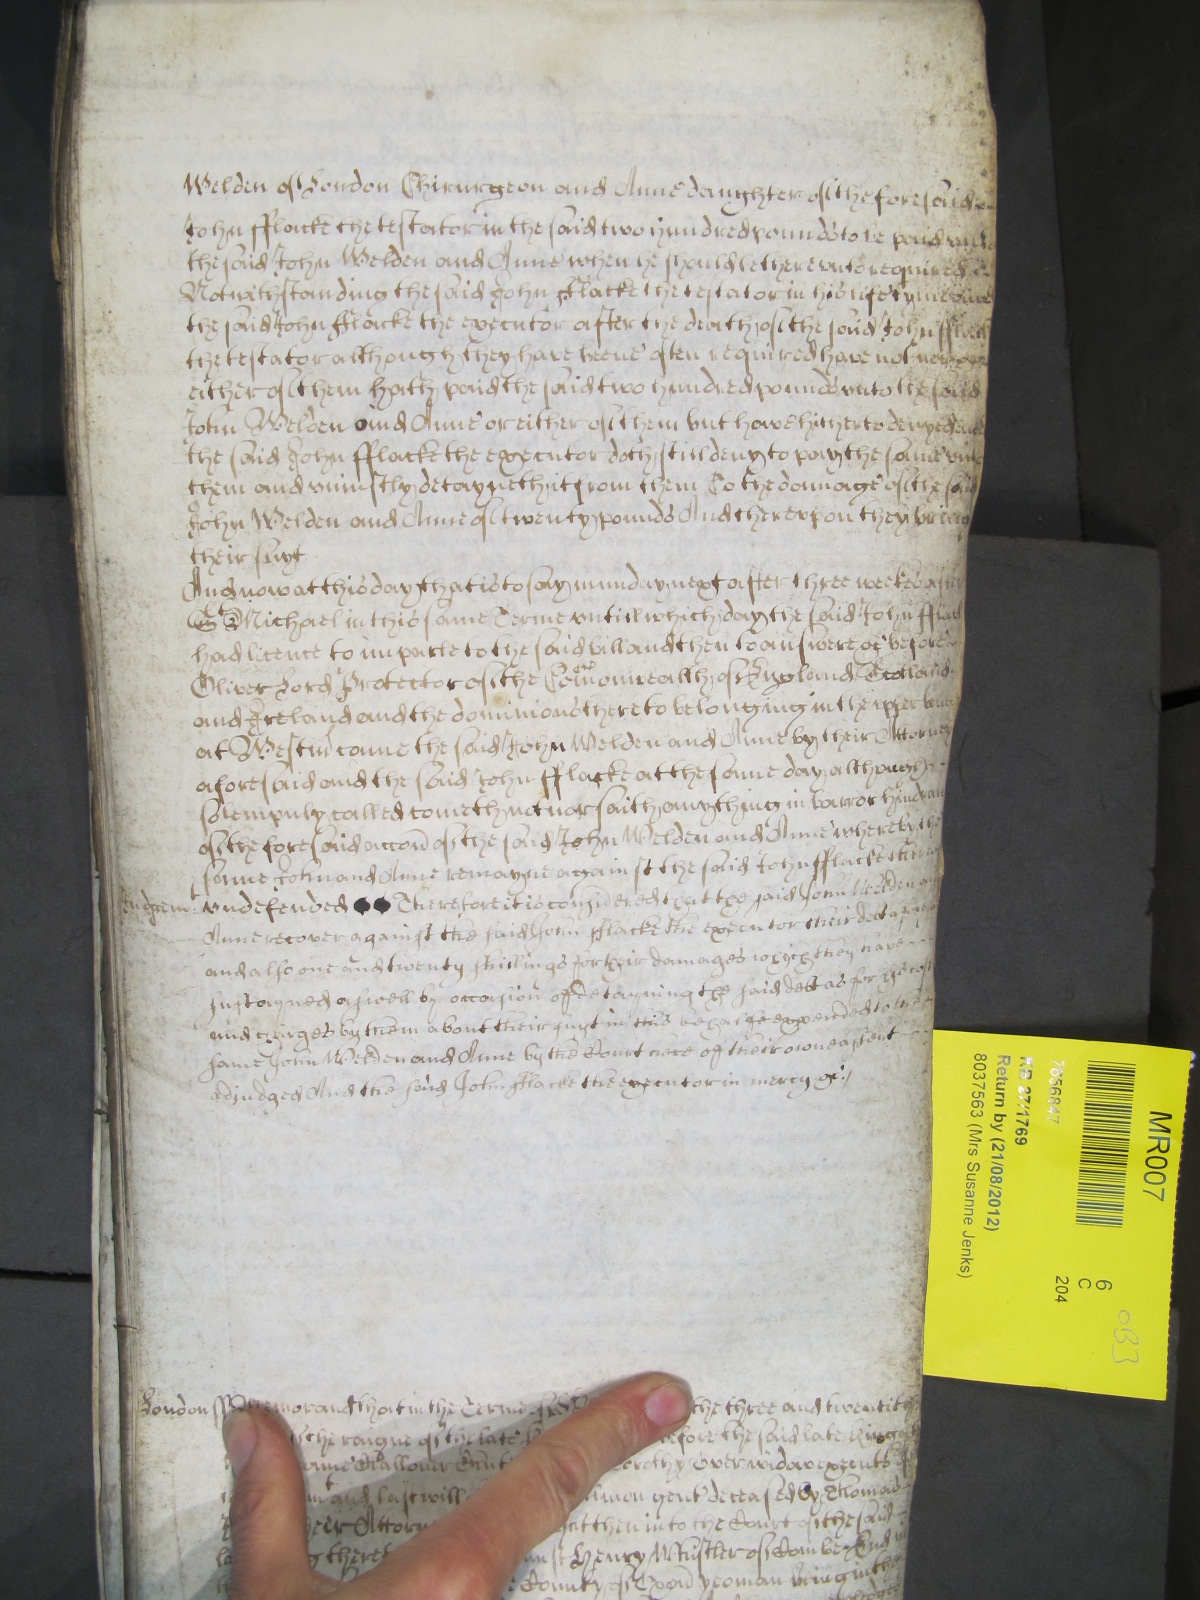 Welden of London Chirurgeon and Anne daughter of the foresaid
John fflacke the testator in the said two hundred pounds to be paid unto
the said John Welden and Anne when he should be thereunto required &c
Notwithstanding the said John fflacke the testator in his life tyme
the said John fflacke the executor after the death of the said John fflack
the testator although they have beene often required have not nor
either of them hath paid the said two hundred pounds unto the said
John Welden and Anne or either of them but have hitherto denyed
the said John fflacke the executor doth still deny to pay the same unt
them and uniustly detayneth it from them To the damage of the said
John Welden and Anne of twenty pounds And thereupon they bring
their suyt
And now at this day that is to say munday next after three weekes after
St Michael in this same Terme untill which day the said John fflack
had licence to imparle to the said bill and then to answere &c before
Oliver Lord Protector of the Comonwealth of England Scotland
and Ireland and the dominions thereto belonging in the upper bench
at Westm come the said John Welden and Anne by their Attorney
aforesaid and the said John fflacke at the same day although
solempnly called cometh not nor saith any thing in barr or hindran
of the foresaid accon of the said John Welden and Anne whereby the
same John and Anne remayne against the said John fflacke therein
Judgem undefended Therefore it is considered that the said John Welden and
Anne recover against the said John fflacke the executor their debt aforesaid
and also one and twenty shillings for their damages which they have
sustayned aswell by occasion of detayning the said debt as for their costs
and charges by them about their suyt in this behalfe expended to the
same John Welden and Anne by the Court here of their owne assent
adiudged And the said John fflacke the executor in mercy &c/
London ss Memorand that in the Terme of St the three and twentith
of the raigne of the late before the said late King at
Dorothy Over widow execut
and last will gent deceased by Thomas
their Attorn then into the Court of the said
Henry Whistler of Combe
County of Oxon yeoman being in the
MR007
6
C
204
7656847
KB 27/1769
Return by (21/08/2012)
8037563 (Mrs Susanne Jenks)